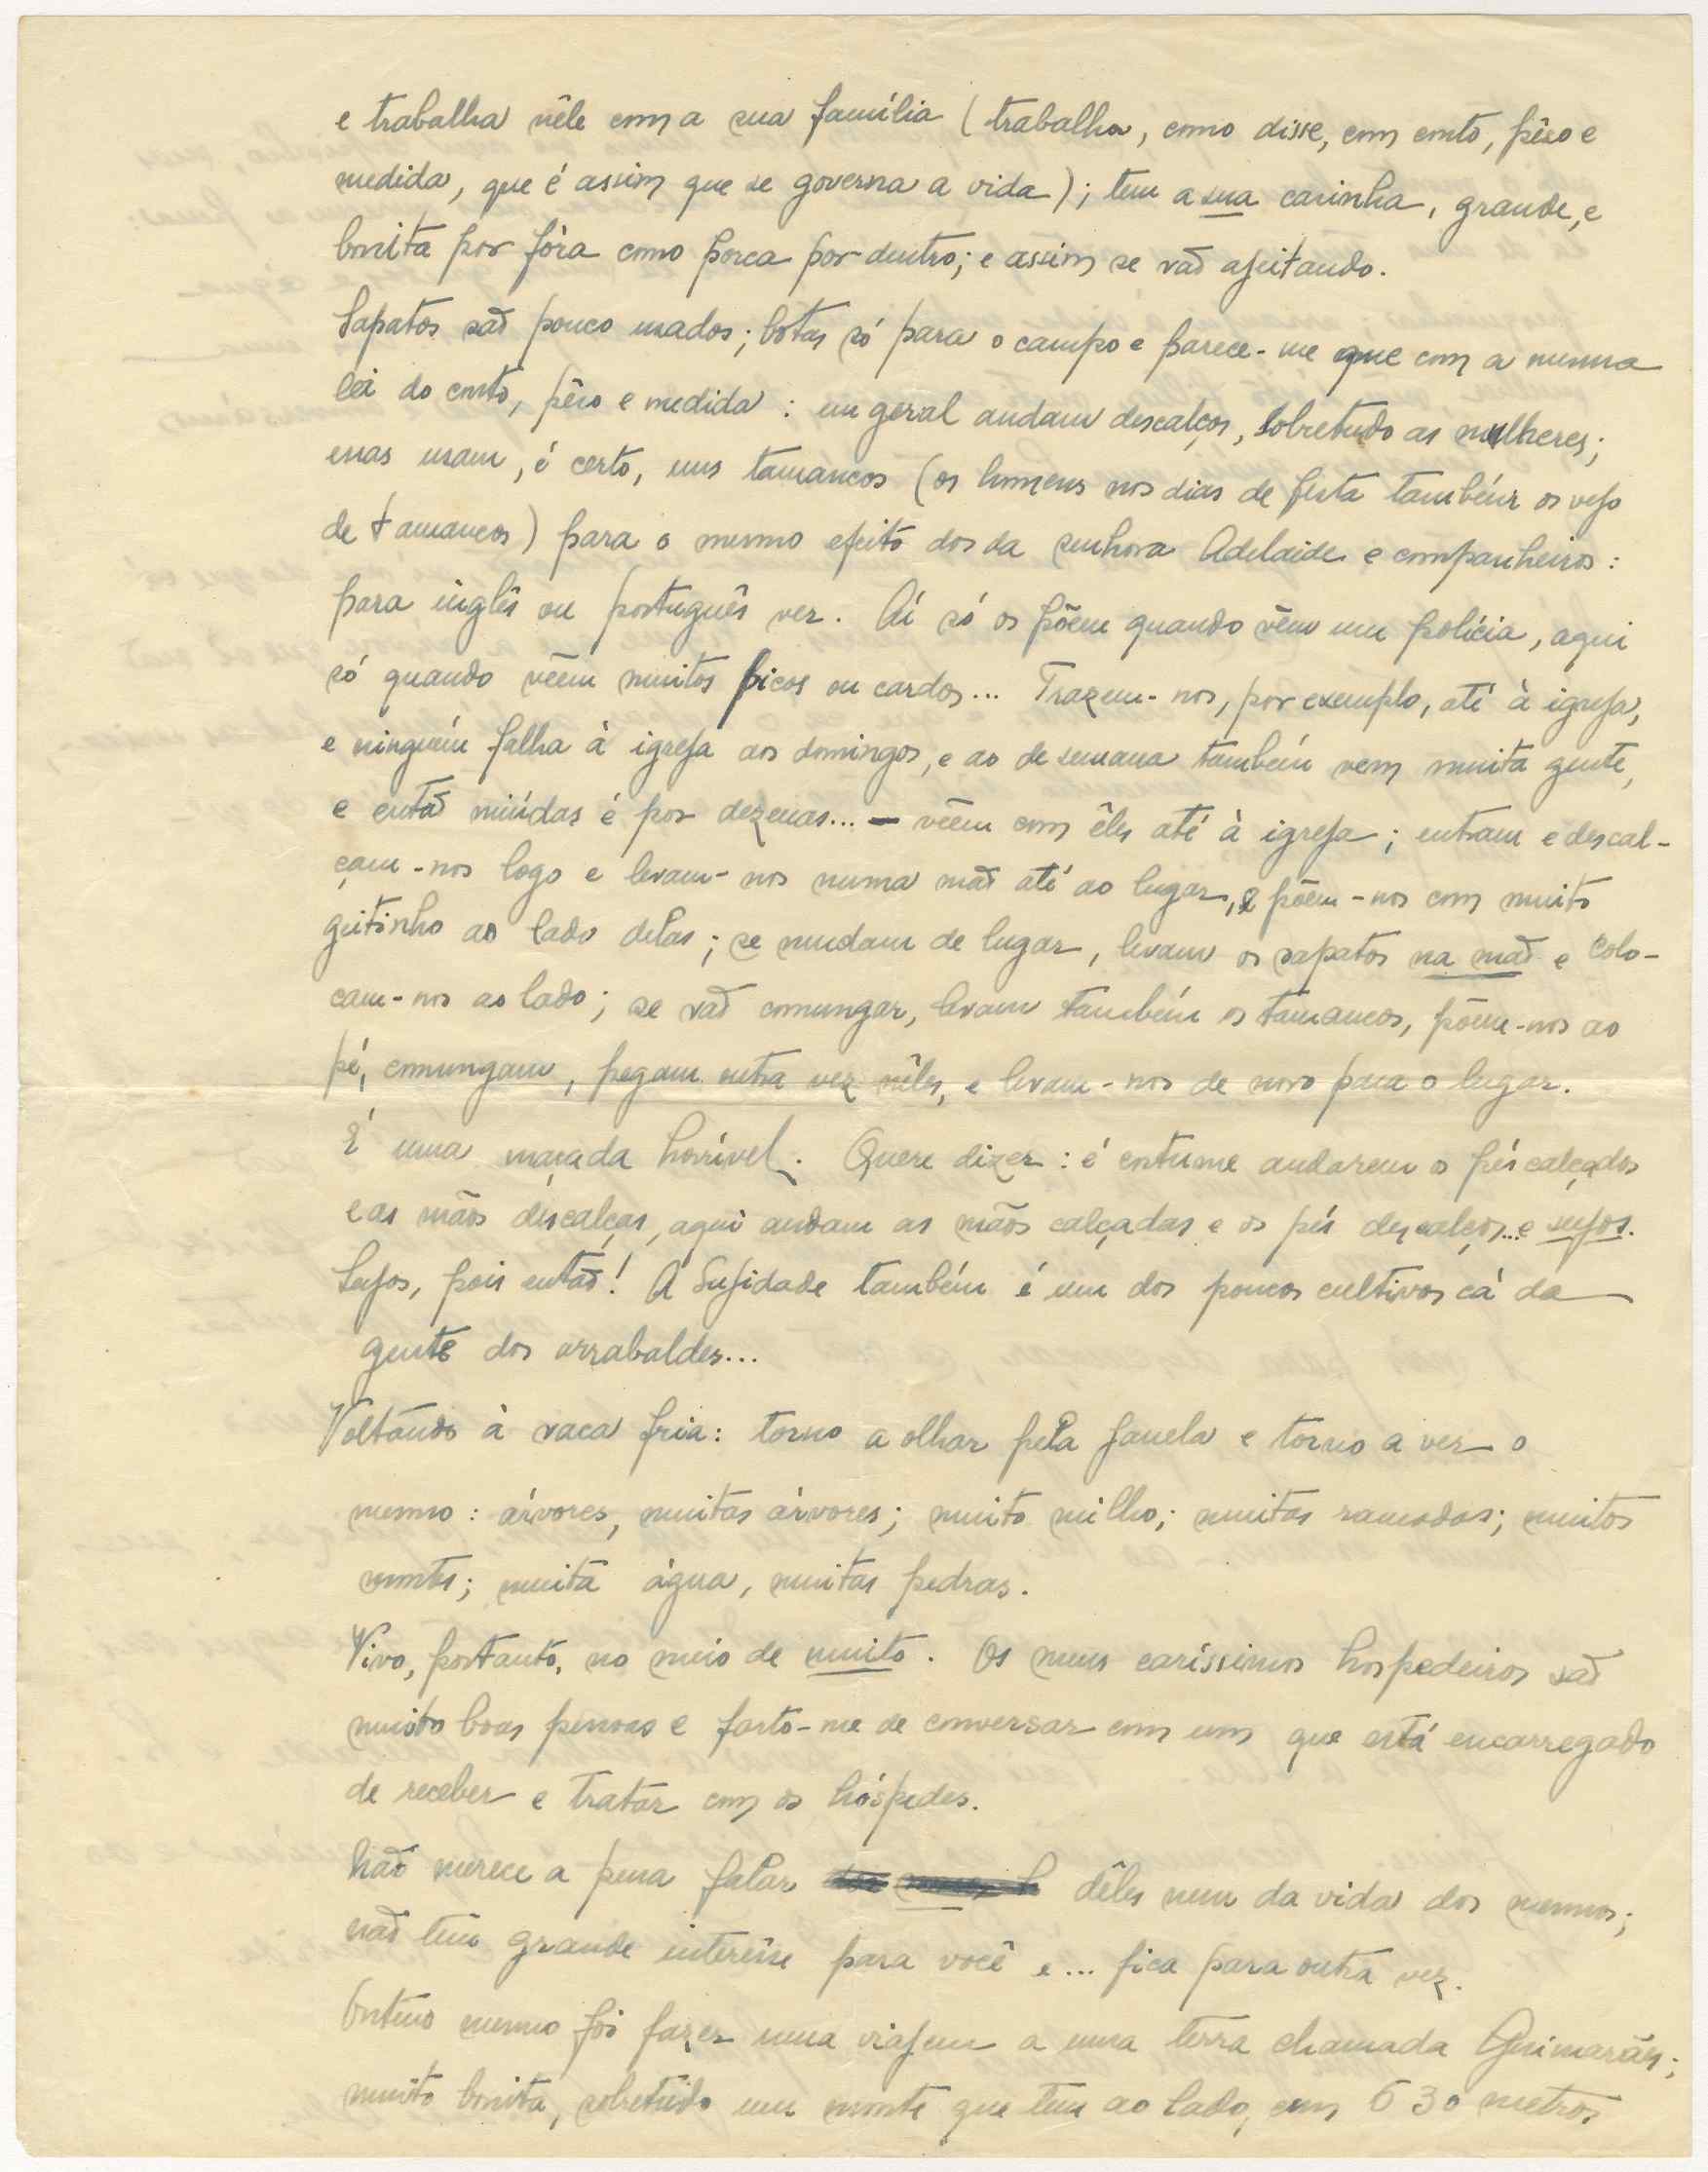 e trabalha nêle com a sua família (trabalha, como disse, com conto, pêso e
medida, que é assim que se governa a vida); tem a sua casinha, grande, e
bonita por fóra como porca por dentro; e assim se vão ajeitando.
Sapatos são pouco usados; botas só para o campo e parece-me que com a mesma
lei do conto, pêso e medida: em geral andam descalços, sobretudo as mulheres;
essas usam, é certo, uns tamancos (os homens nos dias de festa também os vejo
de tamancos) para o mesmo efeito dos da senhora Adelaide e companheiros:
para inglês ou português ver. Aí só os põem quando vêm um polícia, aqui
só quando vêem muitos picos ou cardos... Trazem-nos, por exemplo, até à igreja,
e ninguém falha à igreja aos domingos, e ao de semana também vem muita gente,
e então miúdas é por dezenas... — vêem com êles até à igreja; entram e descal-
çam-nos logo e levam-nos numa mão até ao lugar, e põem-nos com muito
geitinho ao lado delas; se mudam de lugar, levam os sapatos na mão e colo-
cam-nos ao lado; se vão comungar, levam também os tamancos, põem-nos ao
pé, comungam, pegam outra vez nêles, e levam-nos de novo para o lugar.
É uma maçada horrível. Quere dizer: é costume andarem os pés calçados
e as mãos descalças, aqui andam as mãos calçadas e os pés descalços... e sujos.
Sujos, pois então! A Sujidade também é um dos poucos cultivos cá da
gente dos arrabaldes...
Voltando à vaca fria: torno a olhar pela janela e torno a ver o
mesmo: árvores, muitas árvores; muito milho; muitas ramadas; muitos
montes; muita água, muitas pedras.
Vivo, portanto, no meio de muito. Os meus caríssimos hospedeiros são
muito boas pessoas e farto-me de conversar com um que está encarregado
de receber e tratar com os hóspedes.
Não merece a pena falar dêles nem da vida dos mesmos;
não tem grande interêsse para você e... fica para outra vez.
Ontem mesmo foi fazer uma viajem a uma terra chamada Guimarães;
muito bonita, sobretudo um monte que tem ao lado, com 630 metros